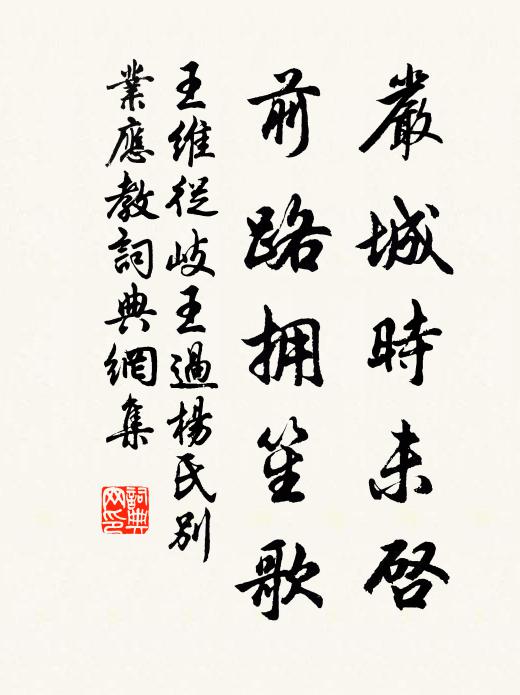 嚴城時未啓
前路擁笙歌
王維從岐王過楊氏別
業應教詞典網集
詞典
网印